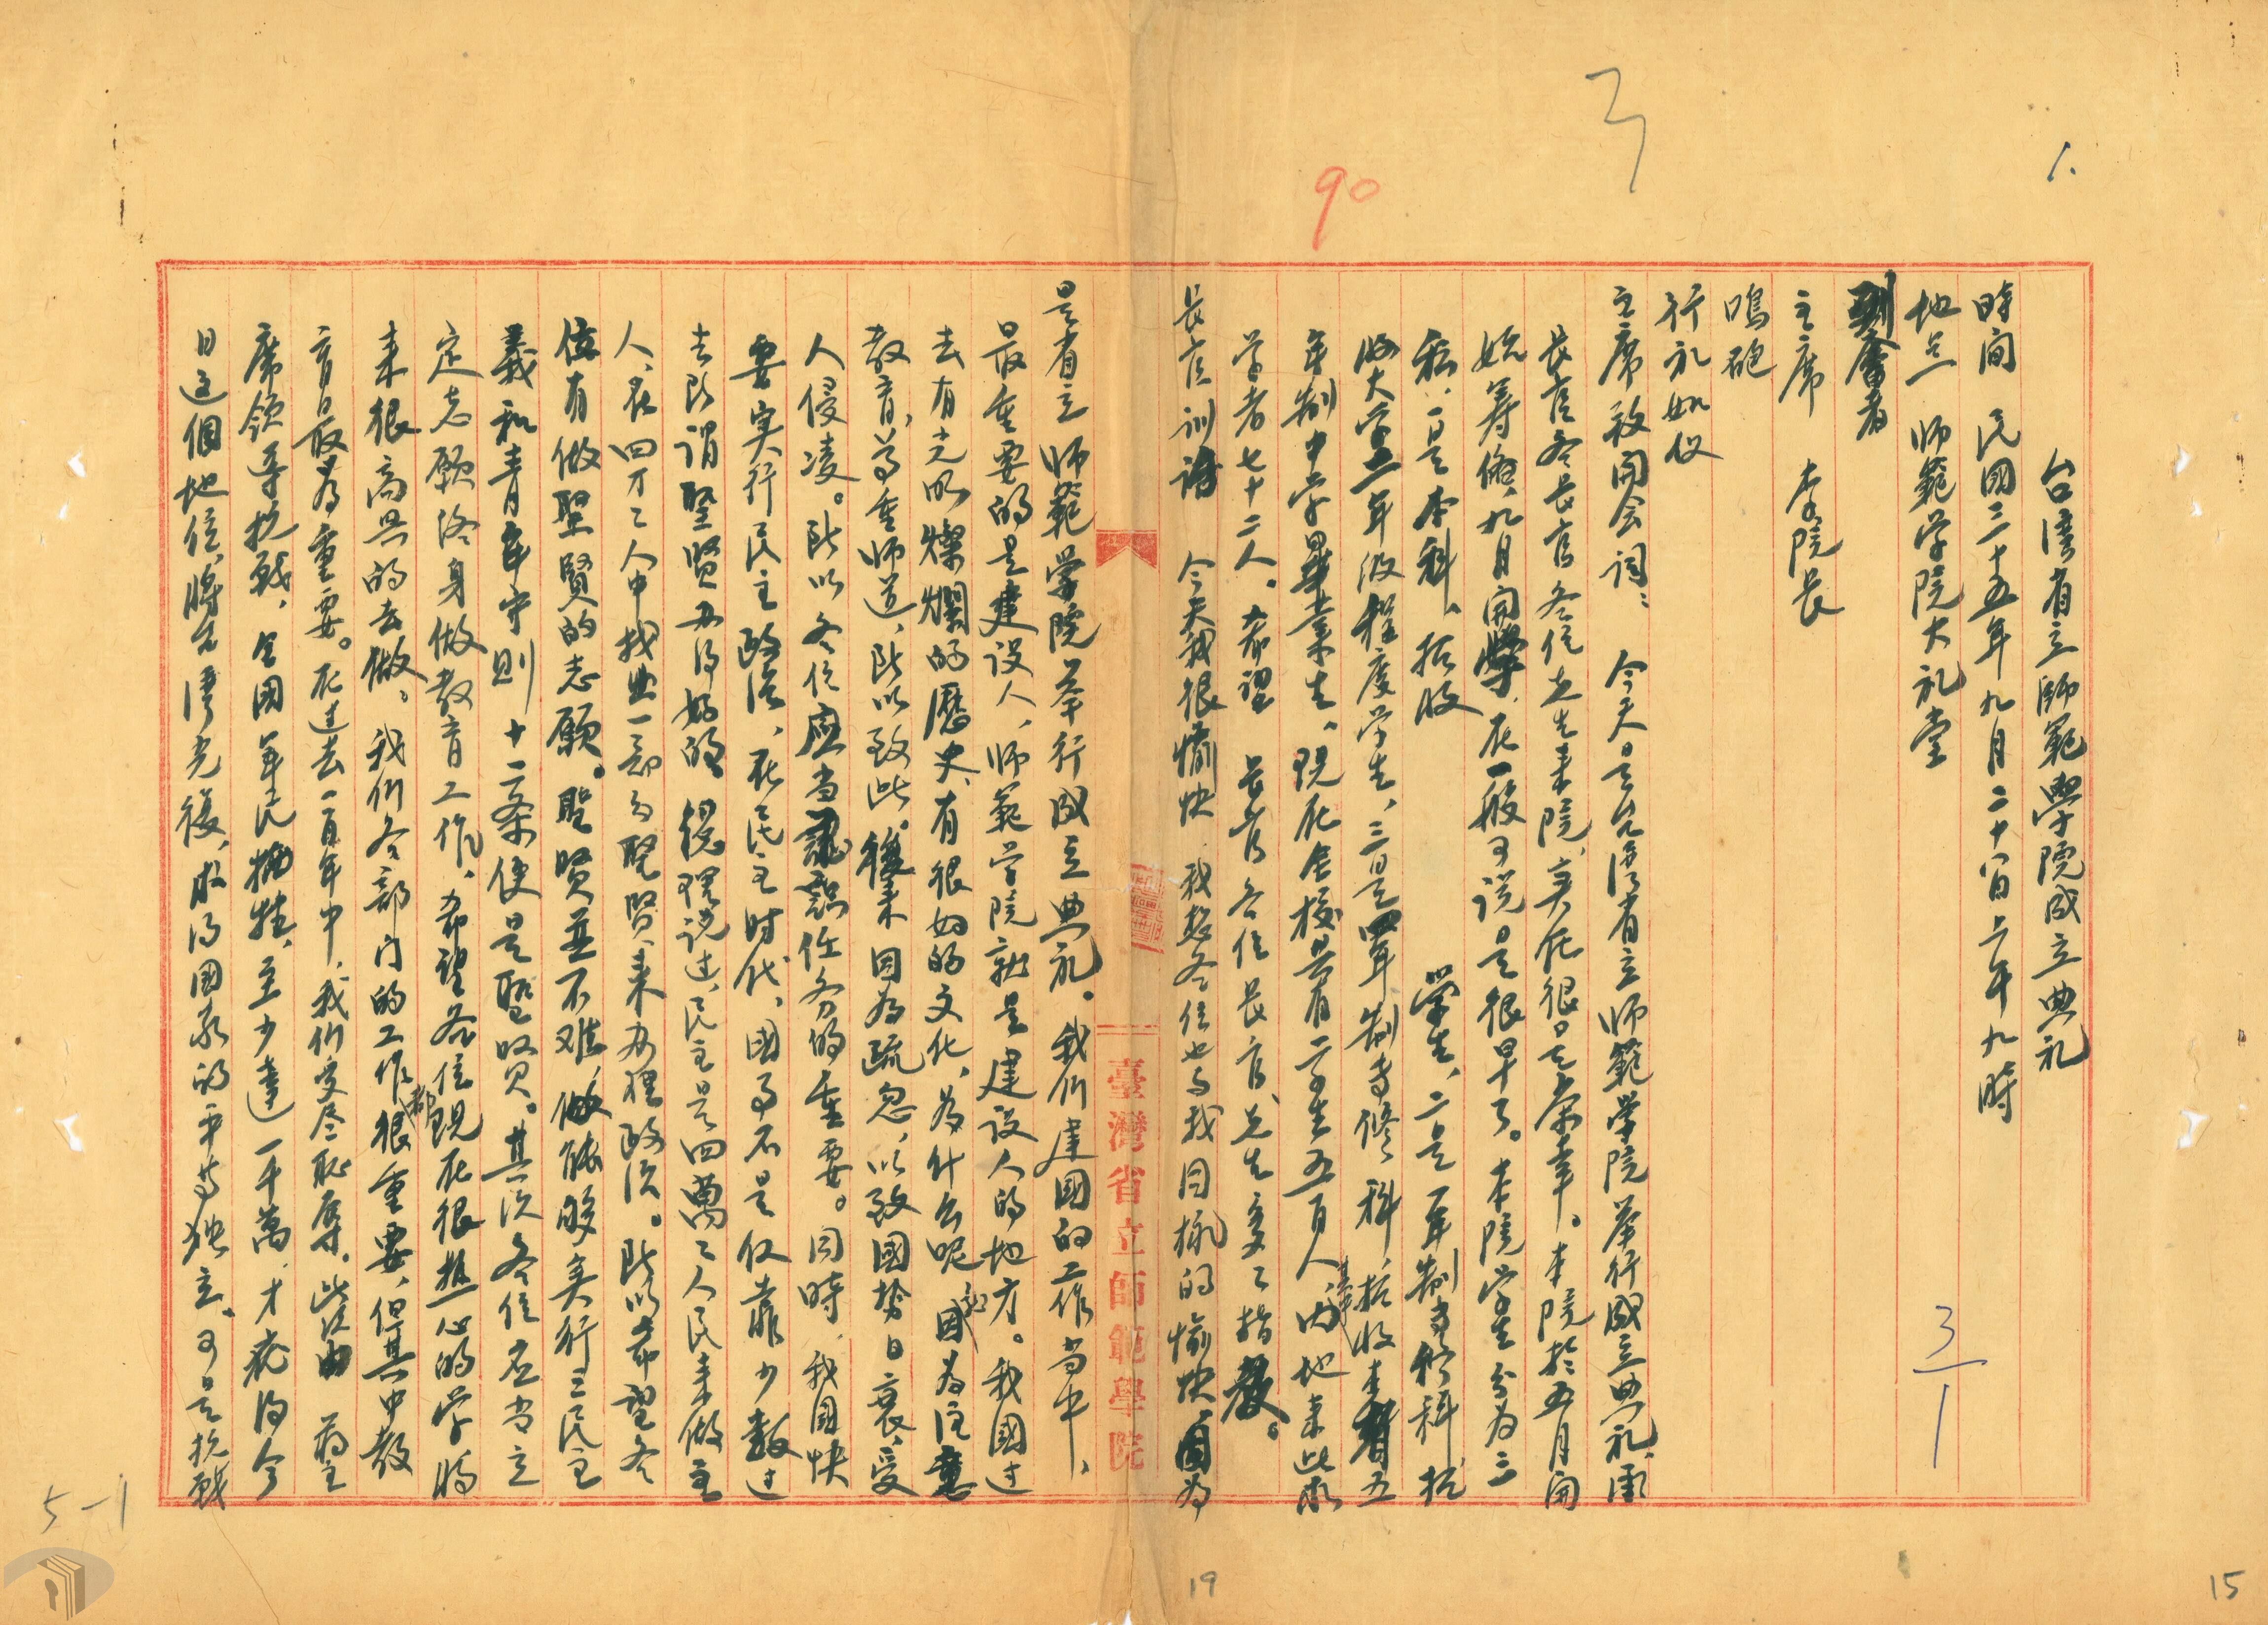 1.
3
90
台湾省立師範學院成立典礼
時间 民國三十五年九月二十八日上午九時
地点 师範学院大礼堂
主席 李院长
鳴砲
行礼如仪
主席致開会词： 今天是台湾省立师範学院举行成立典礼，蒙
长官各长官各位先生来院，实在很是荣幸。本院於五月開
始筹備，九月開學，在一般可说是很早了。本院学生分为三
种，一是本科，招收 学生，二是一年制专修科，招
收大学二年级程度学生，三是四年制专修科，招收本省五
年制中学畢業生，现在全校共有学生五百人，其中内地来此求
学者七十二人。希望 长官各位长官先生多〻指教。
长官训詞 今天我很愉快，我想各位也与我同樣的愉快，因为
臺灣省立師範學院
是省立师範学院举行成立典礼。我们建國的工作当中，
最重要的是建设人，师範学院就是建设人的地方。我國过
去有光明燦爛的歷史，有很好的文化，为什么呢？因为注意
教育，尊重师道，所以致此。後来因为疏忽，以致國势日衰，受
人侵凌。所以各位應当認識任务的重要。同時，我國快
要实行民主政治，在民主时代，國事不是仅靠少数过
去所谓聖贤办得好的，總理说过，民主是四萬〻人民来做主
人，在四万〻人中找出一部份聖贤，来办理政治。所以希望各
位有做聖賢的志願。聖贤並不难，做能够实行三民主
義和青年守则十二条便是聖贤。其次各位应当立
定志願终身做教育工作，希望各位现在很热心的学，将
来很高兴的去做。我们各部门的工作都很重要，但其中教
育最为重要。在过去一百年中，我们受尽耻辱，此次由 蒋主
席领导抗战，全國军民犧牲，至少達一千萬，才获得今
日这個地位，將台湾光復，求得国家的平等独立。可是抗战
3/1
5-1
19
15